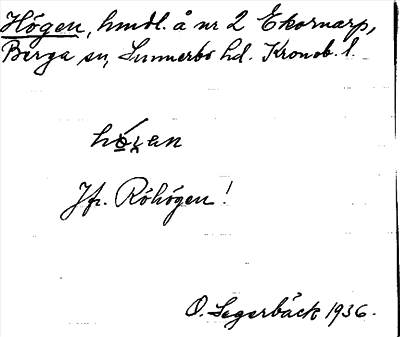 Högen, hmdl. å nr 2 Ekornarp,
Berga sn, Sunnerbo hd. Kronob. l.
hǫ́ɣen
Jfr. Röhögen!
O. Segerbäck 1936.